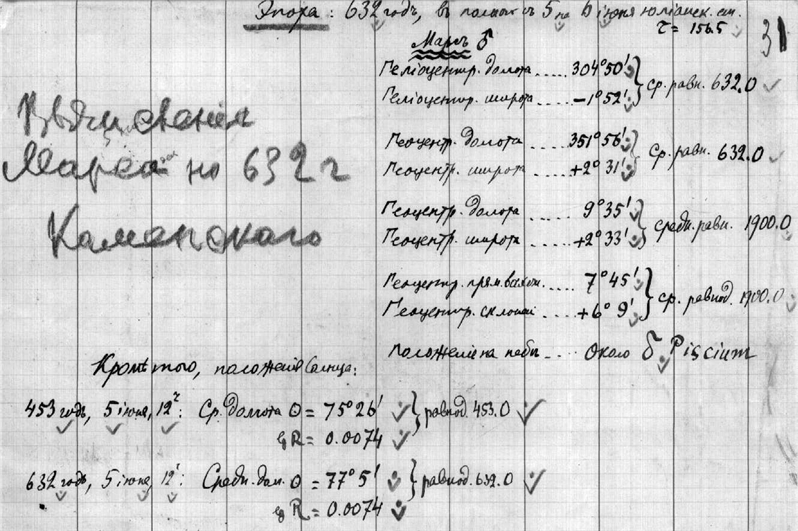 Эпоха: 632 годъ, въ полночь съ 5 на 6 іюня юліанск. ст.
τ = 156.5
31
Марсъ ♂
Геліоцентр. долгота ..... 304°50'
Геліоцентр. широта ..... −1°52'
ср. равн. 632.0
Вычисленія
Марса на 632 г
Каменскаго
Геоцентр. долгота ..... 351°56'
Геоцентр. широта ..... +2°31'
Ср. равн. 632.0
Геоцентр. долгота .... 9°35'
Геоцентр. широта .... +2°33'
средн. равн. 1900.0
Геоцентр. прям. восхожд. ... 7°45'
Геоцентр. склоненіе ... +6°9'
ср. равнод. 1900.0
Положеніе на небѣ .... около δ Piscium
Кромѣ того, положенія Солнца:
453 годъ, 5 іюня, 12ч: Ср. Долгота ⊙ = 75°26'
lg R = 0.0074
равнод. 453.0
632 годъ, 5 іюня, 12ч: Средн. дол. ⊙ = 77°5'
lg R = 0.0074
равнод. 632.0